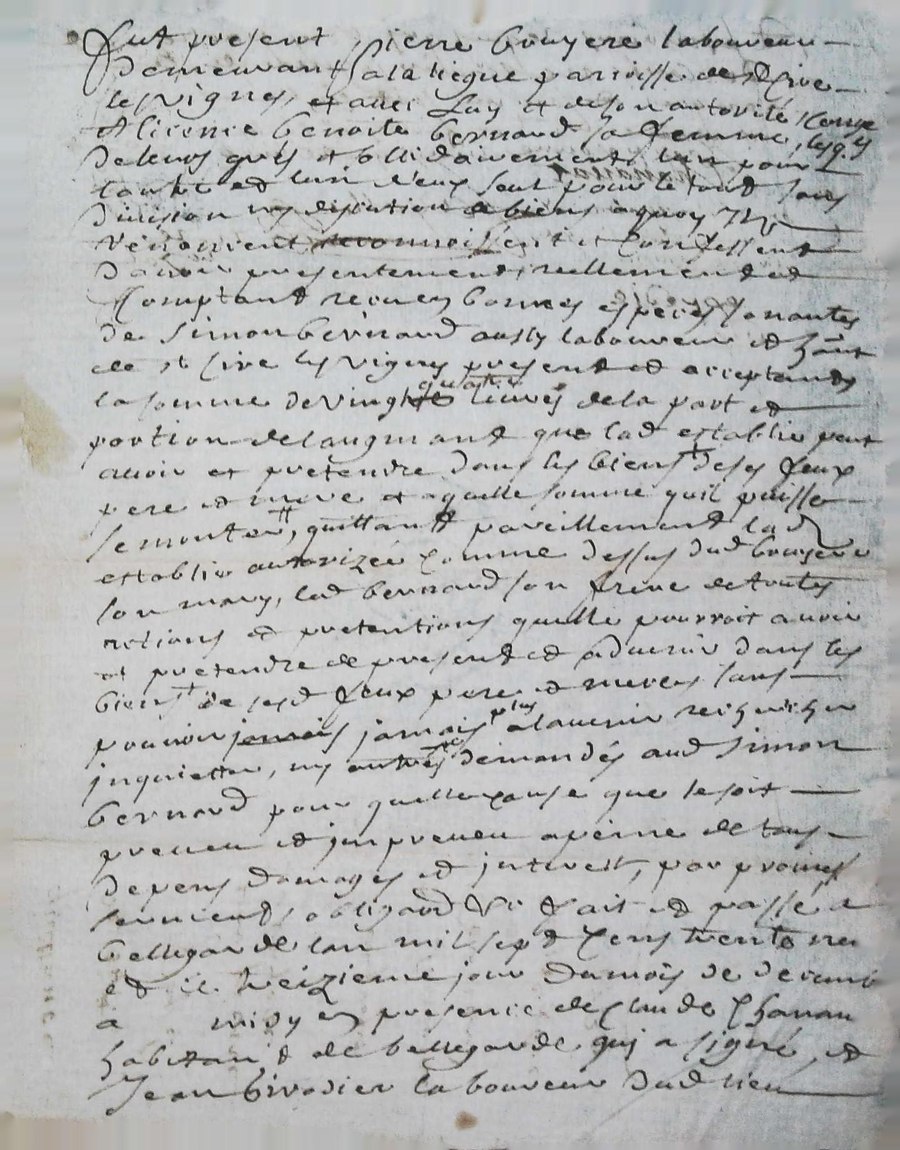 fut present pierre bruyere laboureur
demeurant a la liegue parroisse de St Cire
les vignes, et avec luy et de son autorité
et licence benoite bernard sa femme, lesqls
de leurs grés et sollidairement lun pour
lautre et lun d'eux seul pour le tout sans
division ny discution de biens a quoy ils
renoncent reconnoissent et confessent
d'avoir presentement reellement et
comptant receu en bonnes especes sonantes
de Simon bernard aussy laboureur et hânt
de st Cire les vignes present et acceptant
la somme de vingt quatre livres de la part et
portion de laugmant que lad establie peut
avoir et pretendre dans les biens de ses feux
pere et mere et a quelle somme quil puisse
se monter, quittant pareillement lad
establie autorizée comme dessus dud bruyere
son mary, led bernard son frere de toutes
actions et pretentions quelle pourroit avoir
et pretendre de present et a duenir dans les
biens de sesd feux pere et mere sans
pouvoir jamais jamais plus a lavenir rechercher
inquietter, ny autres demandés aud Simon
bernard pour quelle cause que se soit
preveu et impreveu a peine de tous
depens domages et interest, par promes
serment, obligaõn &c fait et passé a
bellegarde lan mil sept cens trente neu
et le treizieme jour du mois de decemb
a midy en presence de Claude Chanau
habitant de bellegarde qui a signé, et
Jean birodier laboureur dud lieu